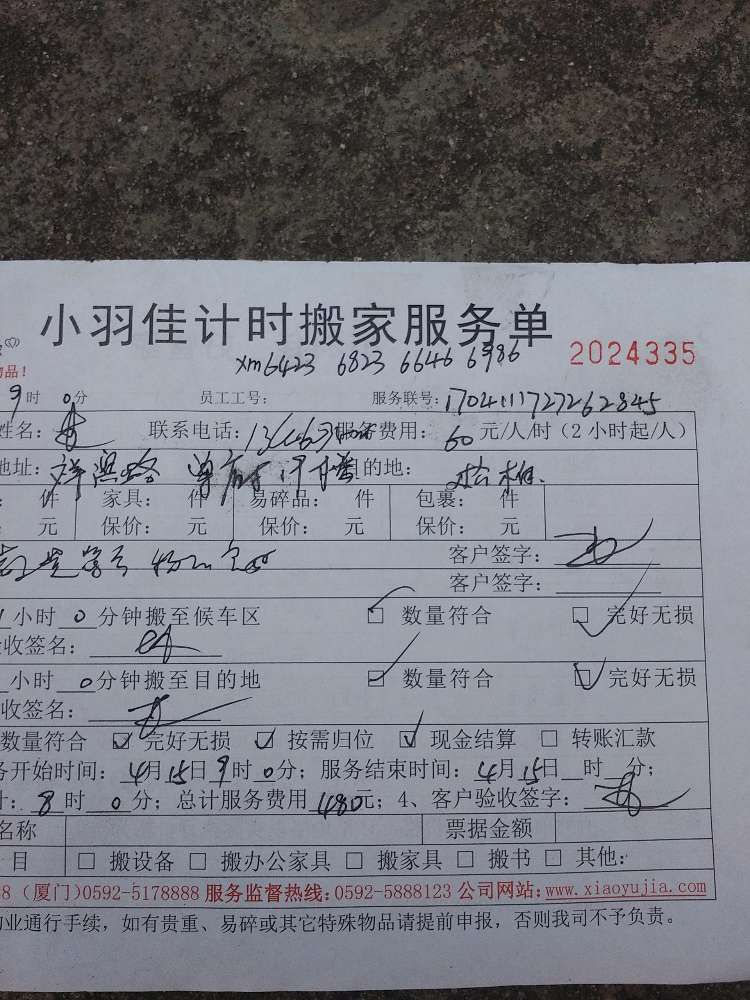 小羽佳计时搬家服务单
xm6423 6823 6646 6986
2024335
物品!
9时 0分 员工工号: 服务联号: 1704111727262845
姓名: 联系电话: 服务费用: 60元/人/时(2小时起/人)
地址: 目的地:
件 家具: 件 易碎品: 件 包裹: 件
元 保价: 元 保价: 元 保价: 元
客户签字:
客户签字:
小时 0分钟搬至候车区 ☑ 数量符合 ☑ 完好无损
收签名:
小时 0分钟搬至目的地 ☑ 数量符合 ☑ 完好无损
收签名:
数量符合 ☑ 完好无损 ☑ 按需归位 ☑ 现金结算 □ 转账汇款
务开始时间: 4月15日9时0分; 服务结束时间: 4月15日 时 分;
计: 8时0分; 总计服务费用480元; 4、客户验收签字:
名称 票据金额
目 □ 搬设备 □ 搬办公家具 □ 搬家具 □ 搬书 □ 其他:
8 (厦门)0592-5178888 服务监督热线:0592-5888123 公司网站:www.xiaoyujia.com
业通行手续, 如有贵重、易碎或其它特殊物品请提前申报, 否则我司不予负责。